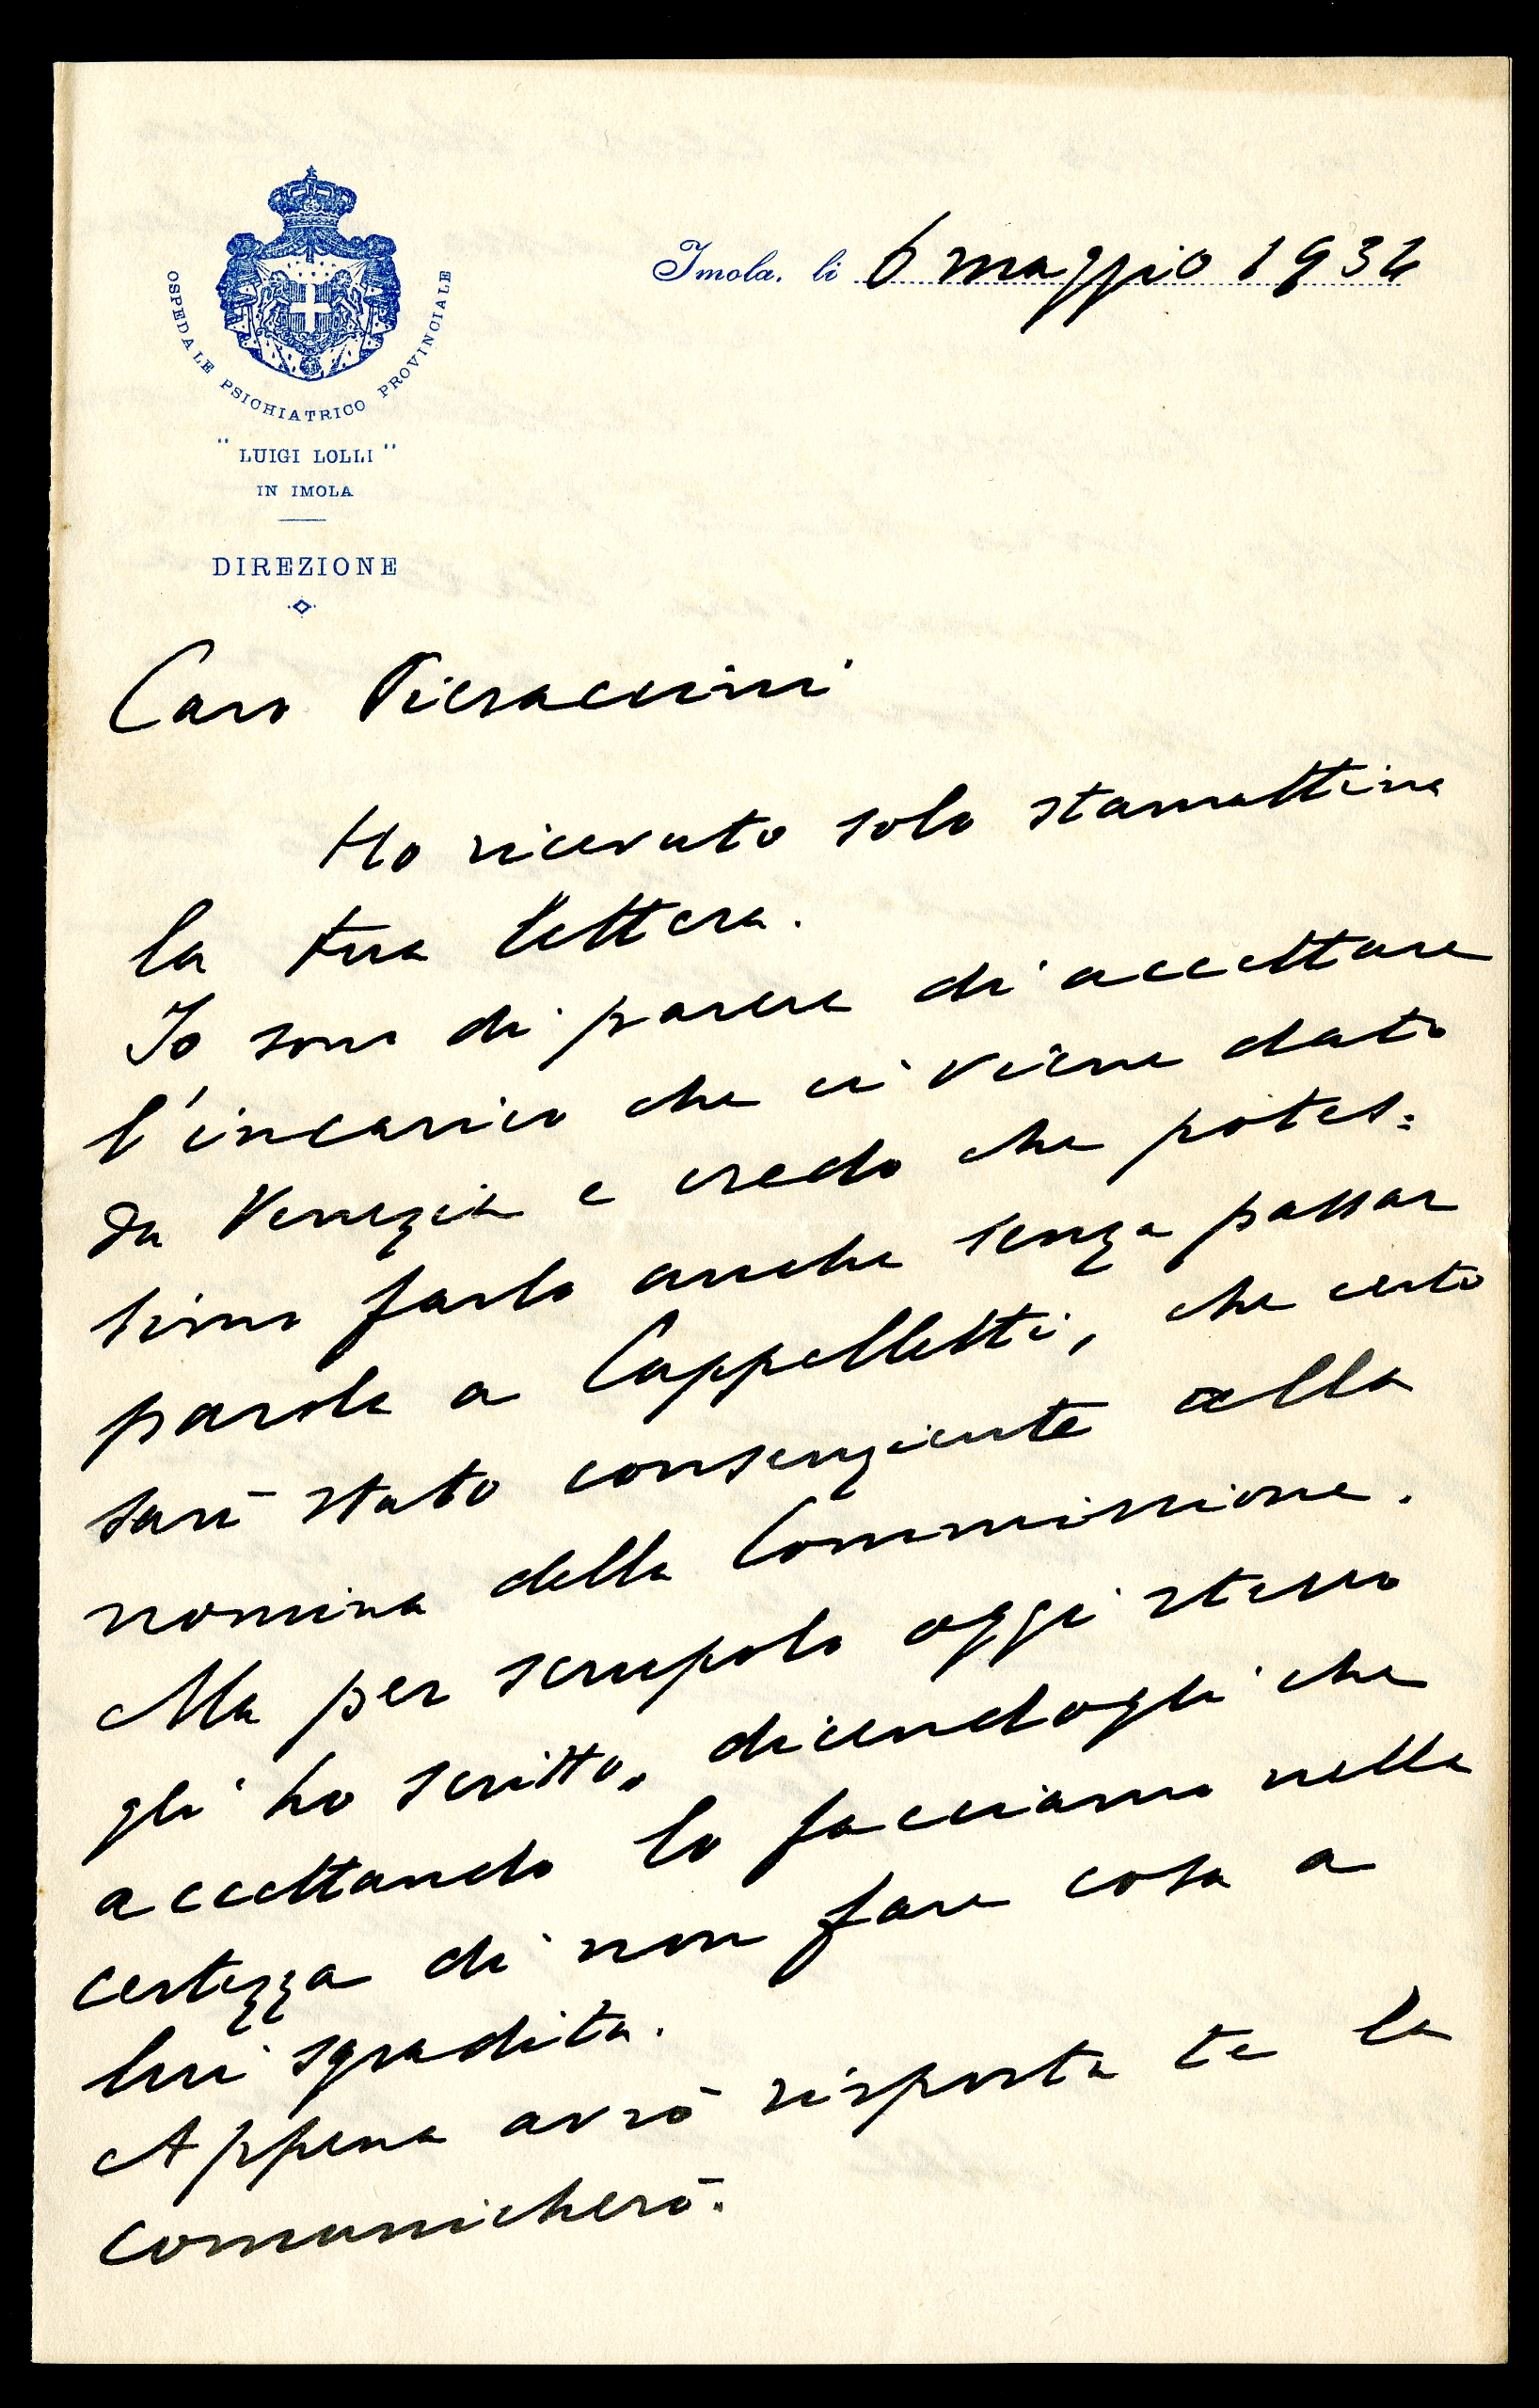 OSPEDALE PSICHIATRICO PROVINCIALE
"LUIGI LOLLI"
IN IMOLA
DIREZIONE
Imola, li 6 maggio 1934
Caro Pieraccini
Ho ricevuto solo stamattina
la tua lettera.
Io sono di parere di accettare
l'incarico che ci viene dato
da Venezia e credo che potes=
simo farlo anche senza passar
parola a Cappelletti, che certo
sarà stato consenziente alla
nomina della Commissione.
Ma per scrupolo oggi stesso
gli ho scritto, dicendogli che
accettando lo facciamo nella
certezza di non fare cosa a
lui sgradita.
Appena avrò risposta te la
comunicherò.